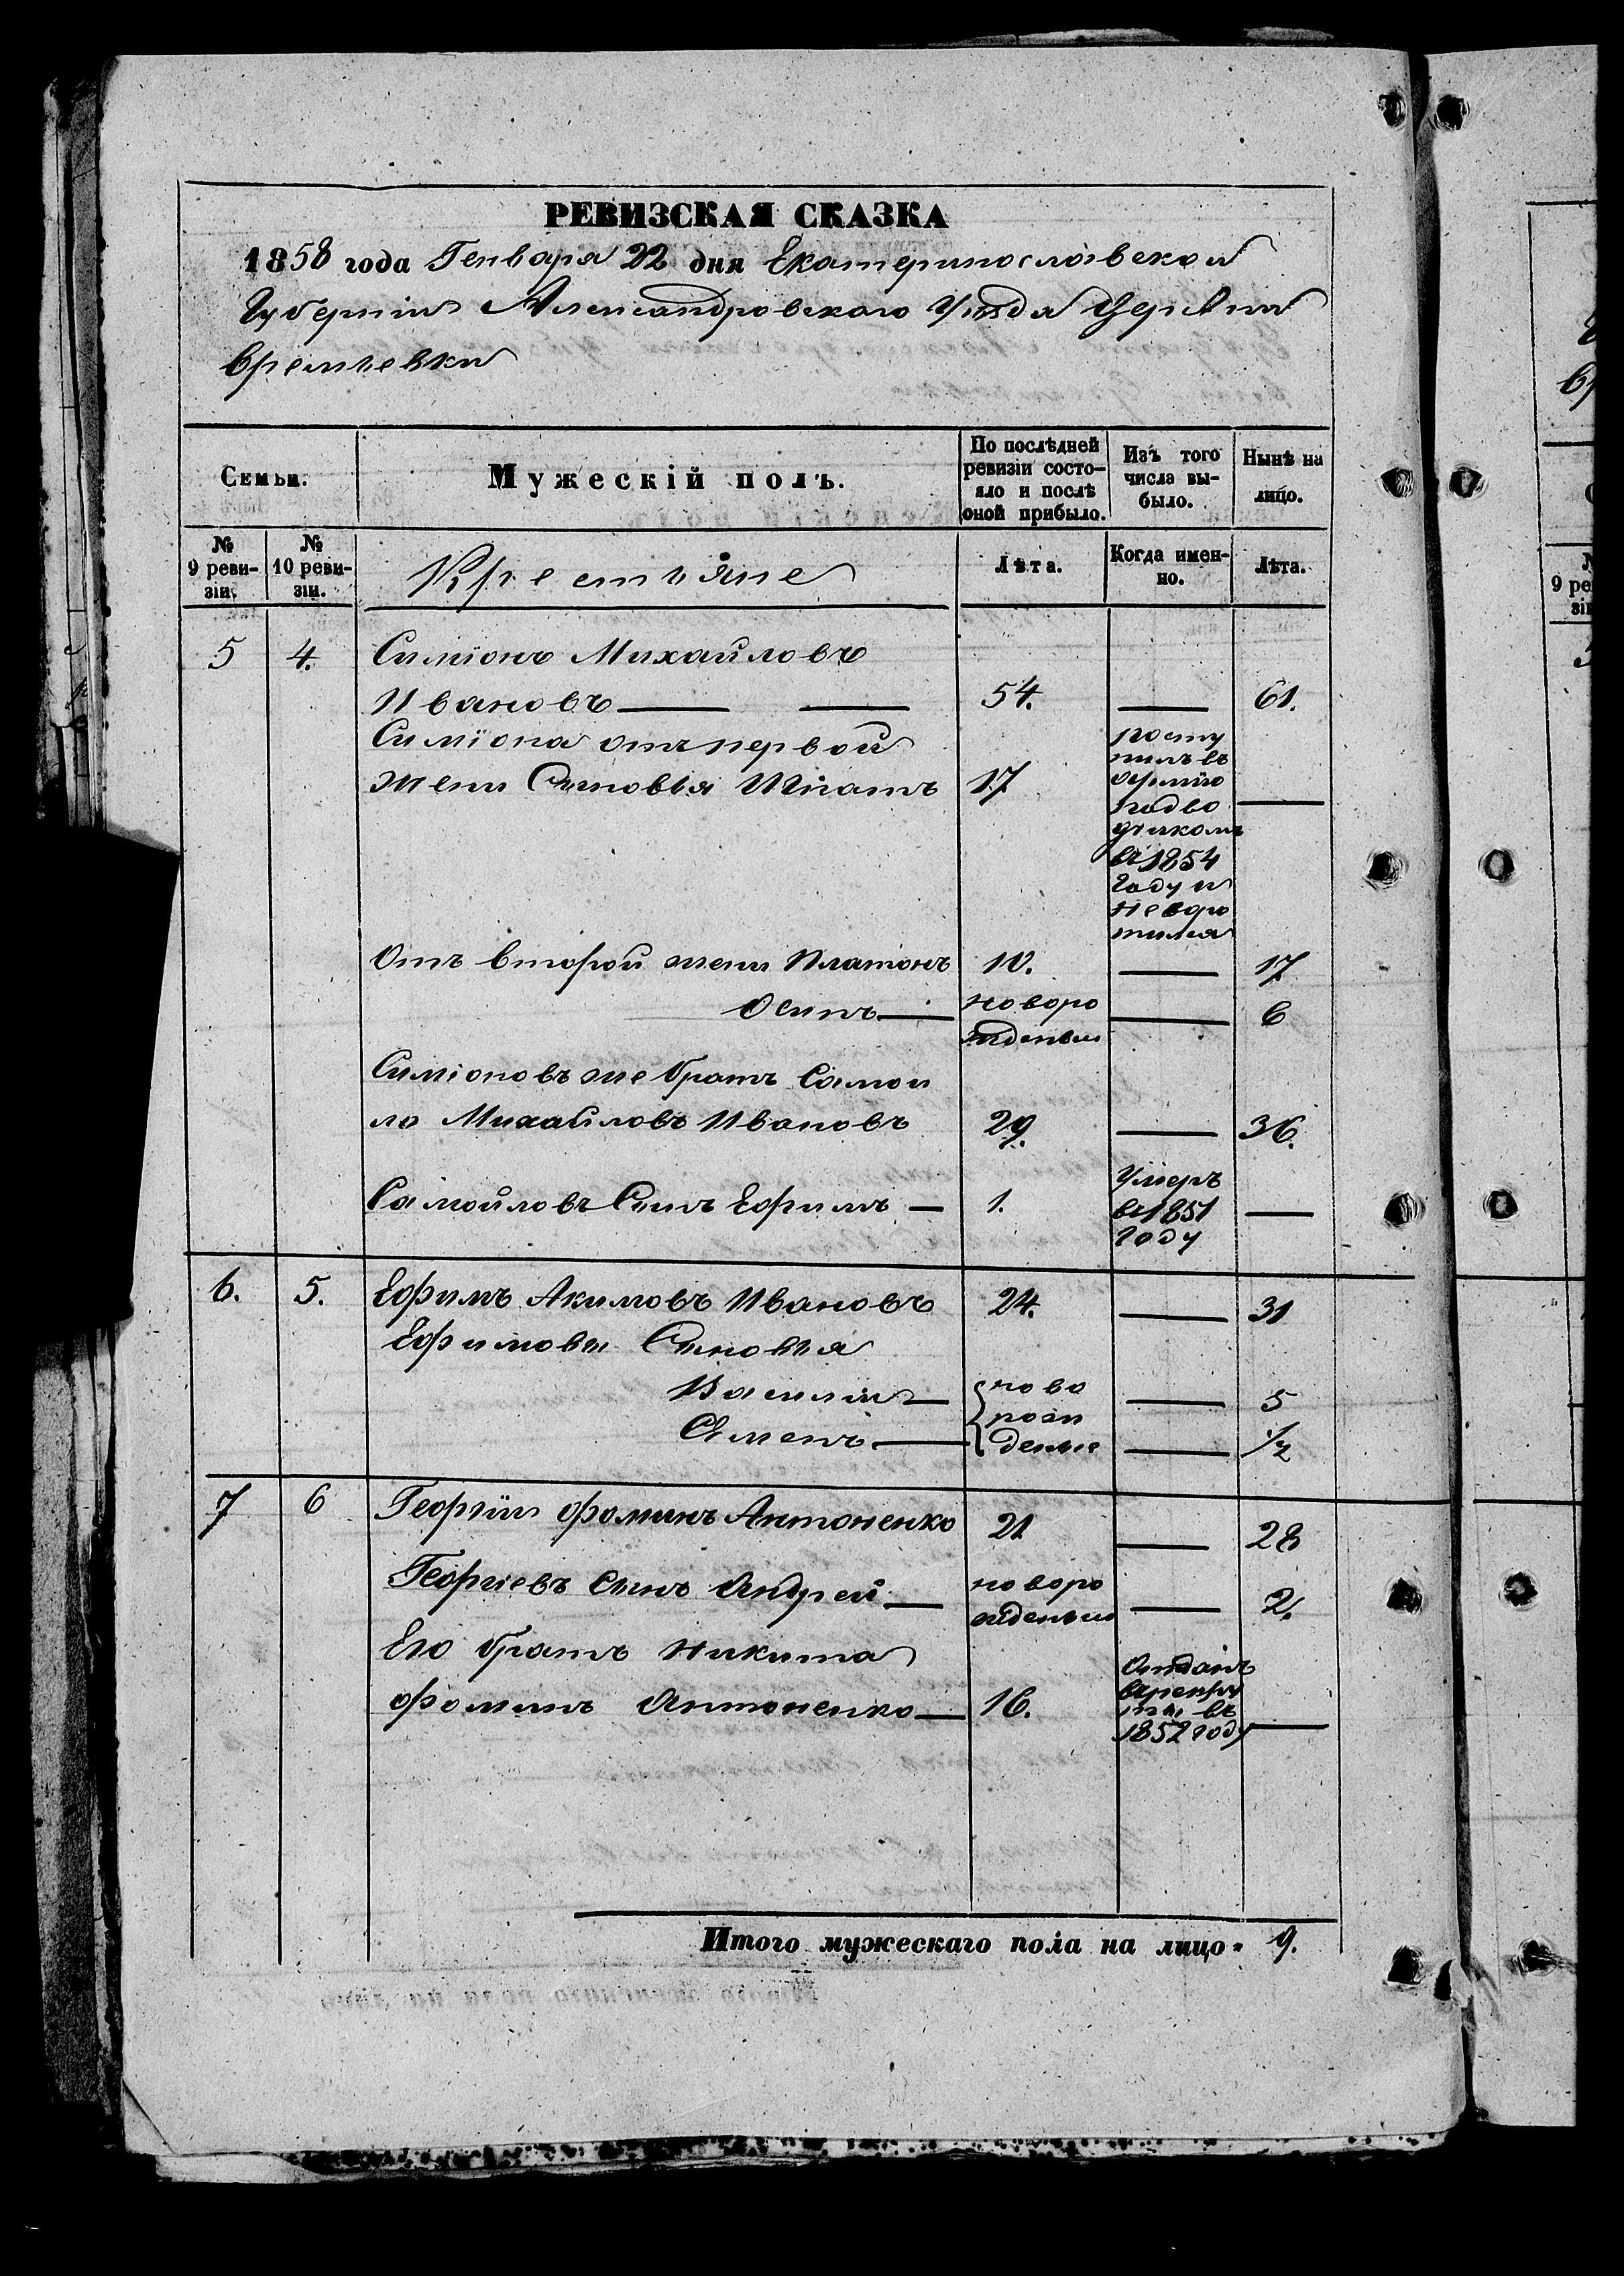 РЕВИЗСКАЯ СКАЗКА
1858 года Генваря 22 дня Екатеринославской
Губерніи Александровскаго Уѣзда Деревни
Времьевки
Семьи.
Мужескій полъ.
По послѣдней
ревизіи состо-
яло и послѣ
оной прибыло.
Изъ того
числа вы-
было.
Нынѣ на
лицо.
№
9 реви-
зіи.
№
10 реви-
зіи.
Крестьяне
Лѣта.
Когда имен-
но.
Лѣта.
5 4. Симіонъ Михайловъ
Ивановъ 54. 61.
Симіона отъ первой
жены Сыновья Игнатъ 17
посту
пилъ въ
Армію
подво
дчикомъ
въ 1854
году и
не воро
тился
Отъ второй жены Платонъ 10. 17
Осипъ новоро
жденый 6
Симіоновъ же братъ Самой
ло Михайловъ Ивановъ 29. 36.
Самойловъ Сынъ Ефимъ 1.
Умеръ
въ 1851
году
6. 5. Ефимъ Акимовъ Ивановъ 24. 31
Ефимовы Сыновья
Василій 5
Семенъ 1/2
ново
рож
дение
7 6 Георгій Фоминъ Антоненко 21 28
Георгіевъ Сынъ Андрей новоро
жденый 2.
Его братъ Никита
Фоминъ Антоненко 16.
Отданъ
врекру
ты въ
1852 году
Итого мужескаго пола на лицо 9.